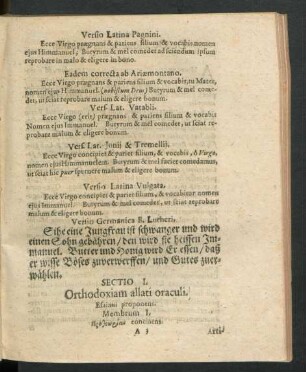 Versio Latina Pagnini.
Ecce Virgo prægnans & pariens filium: & vocabis nomen
ejus Himmanuel, Butyrum & mel comedet ad sciendum ipsum
reprobare in malo & eligere in bono.
Eadem correcta ab Ariamontano.
Ecce Virgo prægnans & pariens filium & vocabit,
nomen ejus Himmanuel. (nobiscum Deus) Butyrum & mel come-
det, ut sciat reprobare malum & eligere bonum.
Vers. Lat. Vatabli.
Ecce Virgo (erit) prægnans & pariens filium & vocabis
Nomen ejus Immanuel. Butyrum & mel comedet, ut sciat re-
probare malum & eligere bonum.
Vers. Lat. Junii & Tremellii.
Ecce Virgo concipiet & pariet filium, & vocabis, ô Virgo,
nomen ejus Himmanuelem. Butyrum & mel comedentum,
ut sciat hic puer spernere malum & eligere bonum.
Versio Latina Vulgata.
Ecce Virgo concipiet & pariet filium, & vocabitur nomen
ejus Immanuel. Butyrum & mel comedet, ut sciat reprobare
malum & eligere bonum.
Versio Germanica B. Lutheri.
Sihe eine Jungfrau ist schwanger und wird
einen Sohn gebähren / den wird sie heissen Im-
manuel. Butter und Honig wird Er essen / daß
er wisse Böses zuverwerffen / und Gutes zuer-
wählen.
SECTIO I.
Orthodoxiam allati oraculi.
Esaiani proponens.
Membrum I.
continens.
A 3